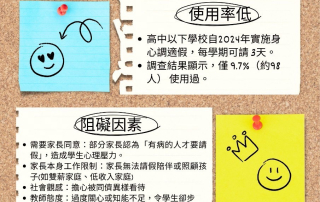 使用率低
• 高中以下學校自2024年實施身
心調適假，每學期可請 3天。
• 調查結果顯示，僅 9.7%（約98
人） 使用過。
阻礙因素
• 需要家長同意：部分家長認為「有病的人才要請
假」，造成學生心理壓力。
• 家長本身工作限制：家長無法請假陪伴或照顧孩
子(如雙薪家庭、低收入家庭)
• 社會觀感：擔心被同儕異樣看待
• 教師態度：過度關心或知能不足，令學生卻步